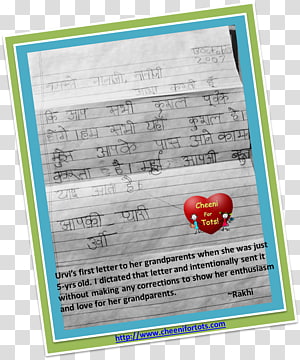 2007
नमस्ते नानाजी, नानीजी
करते हैं
कि आप सभी कुशल पूर्वक
होंगे। हम सभी यहाँ कुशल हैं।
आपके पास आने का मन
करता है। मुझे आपकी
याद आती है।
आपकी प्यारी
उर्वी
Cheeni
For
Tots!
Urvi's first letter to her grandparents when she was just
5-yrs old. I dictated that letter and intentionally sent it
without making any corrections to show her enthusiasm
and love for her grandparents. ~Rakhi
http://www.cheenifortots.com